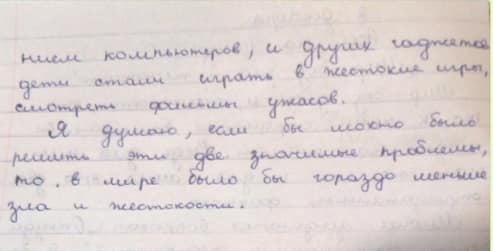 нием компьютеров, и других гаджетов
дети стали играть в жестокие игры,
смотреть фильмы ужасов.
Я думаю, если бы можно было
решить эти две значимые проблемы,
то в мире было бы гораздо меньше
зла и жестокости.